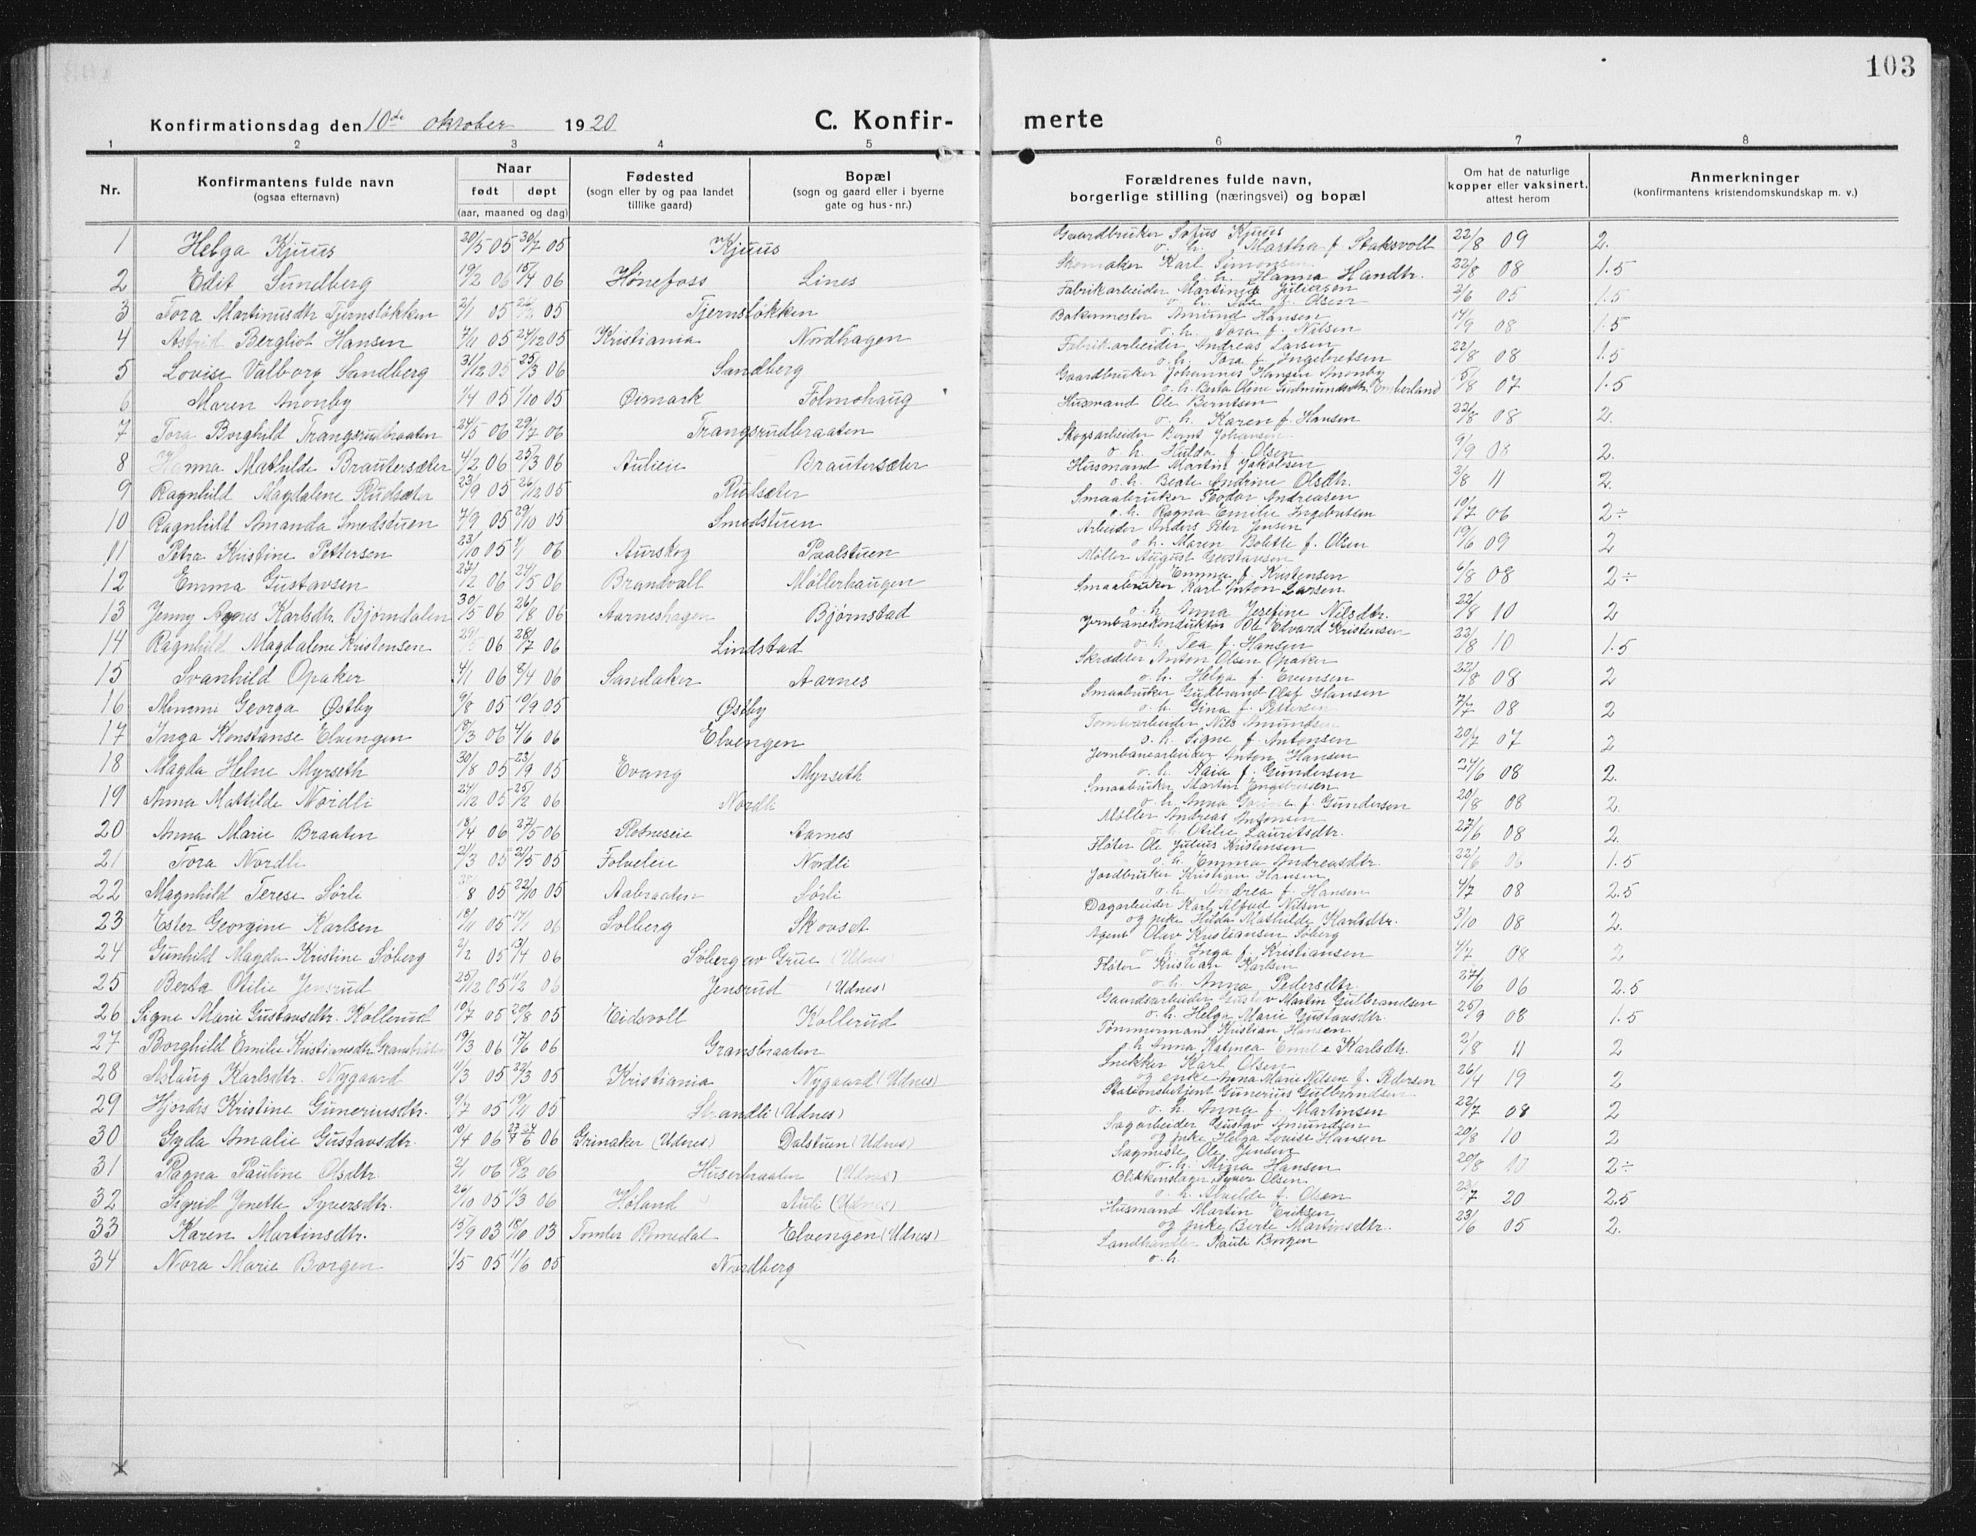 103
Konfirmationsdag den 10de oktober 1920
C. Konfir- merte
1 2 3 4 5 6 7 8
Nr.
Konfirmantens fulde navn
(ogsaa efternavn)
Naar
født døpt
(aar, maaned og dag)
Fødested
(sogn eller by og paa landet
tillike gaard)
Bopæl
(sogn og gaard eller i byerne
gate og hus-nr.)
Forældrenes fulde navn,
borgerlige stilling (næringsvei) og bopæl
Om hat de naturlige
kopper eller vaksinert,
attest herom
Anmerkninger
(konfirmantens kristendomskundskap m. v.)
1 Helga Kjuus 20/5 05 30/7 05 Kjuus Gaardbruker Sofus Kjuus 22/8 09 2.
o. h. Martha f. Staksvoll
2 Edit Sundberg 19/2 06 15/4 06 Hønefoss Lines Skomaker Karl Simonsen 22/8 08 1.5
o. h. Hanna Handtr.
3 Tora Martinusdtr Tjernsløkken 2/1 05 05 Tjernsløkken Fabrikarbeider Martinus Juliussen 3/6 05 1.5
o. h. f. Olsen
4 Astrid Bergliot Hansen 7/11 05 24/12 05 Kristiania Nordhagen Bakermester Amund Hansen 14/9 08 1.5
o. h. Tora f. Nilsen
5 Lovise Valborg Sandberg 31/12 05 25/3 06 Sandberg Fabrikarbeider Andreas Larsen 22/8 08 1.5
o. h. Tora f. Ingebretsen
6 Maren Anonby 1/4 05 1/10 05 Øimark Folmohaug Gaardbruker Johannes Hansen Anonby 15/8 07 1.5
o. h. Berta Oline Gudmundsdtr. Emberland
7 Tora Borghild Trangsrudbraaten 24/5 06 29/7 06 Trangsrudbraaten Husmand Ole Berntsen 22/8 08 2.
o. h. Karen f. Hansen
8 Hanna Mathilde Brautersæter 4/2 06 25/3 06 Aulieie Brautersæter Skogsarbeider Bernt Johansen 9/9 08 2.
o. h. Hulda f. Olsen
9 Ragnhild Magdalene Rudsæter 23/9 05 26/12 05 Rudsæter Husmand Martin Jakobsen 2/8 11 2.
o. h. Beate Andrine Olsdtr.
10 Ragnhild Amanda Smedstuen 7/9 05 29/10 05 Smedstuen Smaabruker Teodor Andreasen 10/7 06 2÷
o. h. Ragna Emilie Ingebretsen
11 Petra Kristine Pettersen 23/10 05 1/1 06 Aurskog Paalstuen Arbeider Anders Peter Jensen 19/6 09 2
o. h. Maren Bolette f. Olsen
12 Emma Gustavsen 27/2 06 24/5 06 Brandvall Møllerhaugen Møller August Gustavsen 6/8 08 2÷
Emma f. Kristensen
13 Jenny Agnes Karlsdtr. Bjørndalen 30/5 06 26/8 06 Aarneshagen Bjørnstad Smaabruker Karl Anton Larsen 22/8 10 2
o. h. Anna Josefine Nilsdtr.
14 Ragnhild Magdalene Kristensen 06 28/7 06 Lindstad Jernbanekonduktør Ole Edvard Kristensen 22/8 10 1.5
o. h. Tea f. Hansen
15 Svanhild Opaker 4/1 06 8/4 06 Sandaker Aarnes Skrædder Anton Olsen Opaker 22/8 08 2
o. h. Helga f. Evensen
16 Mimmi Georga Østby 9/8 05 10/9 05 Østby Smaabruker Gudbrand Olaf Hansen 7/7 08 2
o. h. Gina f. Pettersen
17 Inga Konstanse Elvengen 18/3 06 4/6 06 Elvengen Tomtearbeider Nils Amundsen 20/7 07 2
o. h. Signe f. Antonsen
18 Magda Helne Myrseth 30/8 05 23/9 05 Evang Myrseth Jernbanearbeider Anton Hansen 24/6 08 2.
o. h. Raia f. Gundersen
19 Anna Mathilde Nordli 24/12 05 25/2 06 Nordli Smaabruker Martin Ingebretsen 20/8 08 2.
o. h. Anna f. Gundersen
20 Anna Marie Braaten 18/4 06 27/5 06 Rotneseie Aarnes Møller Andreas Antonsen 27/6 08 2.
o. h. Otilie Lauritsdtr.
21 Tora Nordli 21/3 05 21/5 05 Folveleie Nordli Fløter Ole Julius Kristensen 22/6 06 1.5
o. h. Emma Andreasdtr.
22 Magnhild Terese Sørli 8 05 22/10 05 Aabraaten Sørli Jordbruker Kristian Hansen 4/7 08 2.5
o. h. Andrea f. Hansen
23 Ester Georgine Karlsen 18/11 05 14/1 06 Solberg Skovset Dagarbeider Karl Alfred Nilsen 3/10 08 2.
og pike Hilda Mathilde Karlsdtr.
24 Gunhild Magda Kristine Søberg 2/12 05 13/4 06 Søberg av Grue (Udnes) Agent Olav Kristiansen Søberg 4/7 08 2
o. h. Inga f. Kristiansen
25 Berta Otilie Jensrud 25/12 05 11/2 06 Jensrud (Udnes) Fløter Kristian Karlsen 27/6 06 2.5
o. h. Anna Pedersdtr.
26 Signe Marie Gustavsdtr. Kollerud 10/7 05 20/8 05 Eidsvoll Kollerud Gaardsarbeider Gustav Martin Gulbrandsen 25/9 08 1.5
o. h. Helga Marie Gustavsdtr.
27 Borghild Emilie Kristiansdtr. Gransbraaten 19/3 06 17/6 06 Gransbraaten Tømmermand Kristian Hansen 2/8 11 2
h. Anna Katinea Emilie Karlsdtr.
28 Aslaug Karlsdtr. Nygaard 11/3 05 29/3 05 Kristiania Nygaard (Udnes) Snekker Karl Olsen 26/4 19 2
og enke Anna Marie Nilsen f. Pedersen
29 Hjordis Kristine Gunerinsdtr. 9/7 05 19/11 05 Strandli (Udnes) Stationsbetjent Gunerius Gulbrandsen 22/7 08 2
o. h. Anna f. Martinsen
30 Gyda Amalie Gustavsdtr. 10/4 06 06 Grimaker (Udnes) Dalstuen (Udnes) Sagarbeider Gustav Amundsen 20/8 10 2
og pike Helga Lovise Hansen
31 Ragna Pauline Olsdtr. 2/1 06 18/2 06 Huserbraaten (Udnes) Sagmester Ole Jensen 20/8 10 2÷
o. h. Mina Hansen
32 Sigrid Jenette Syversdtr. 26/10 05 11/3 06 Høland Auli (Udnes) Blikkenslager Syver Olsen 23/7 20 2.5
o. h. Alvilde f. Olsen
33 Karen Martinsdtr. 15/9 03 18/10 03 Tomter Romedal Elvengen (Udnes) Husmand Martin Eriksen 23/6 05 2.
og pike Berte Martinsdtr.
34 Nora Marie Borgen 1/5 05 11/6 05 Nordberg Landhandler Pauli Borgen
o. h.